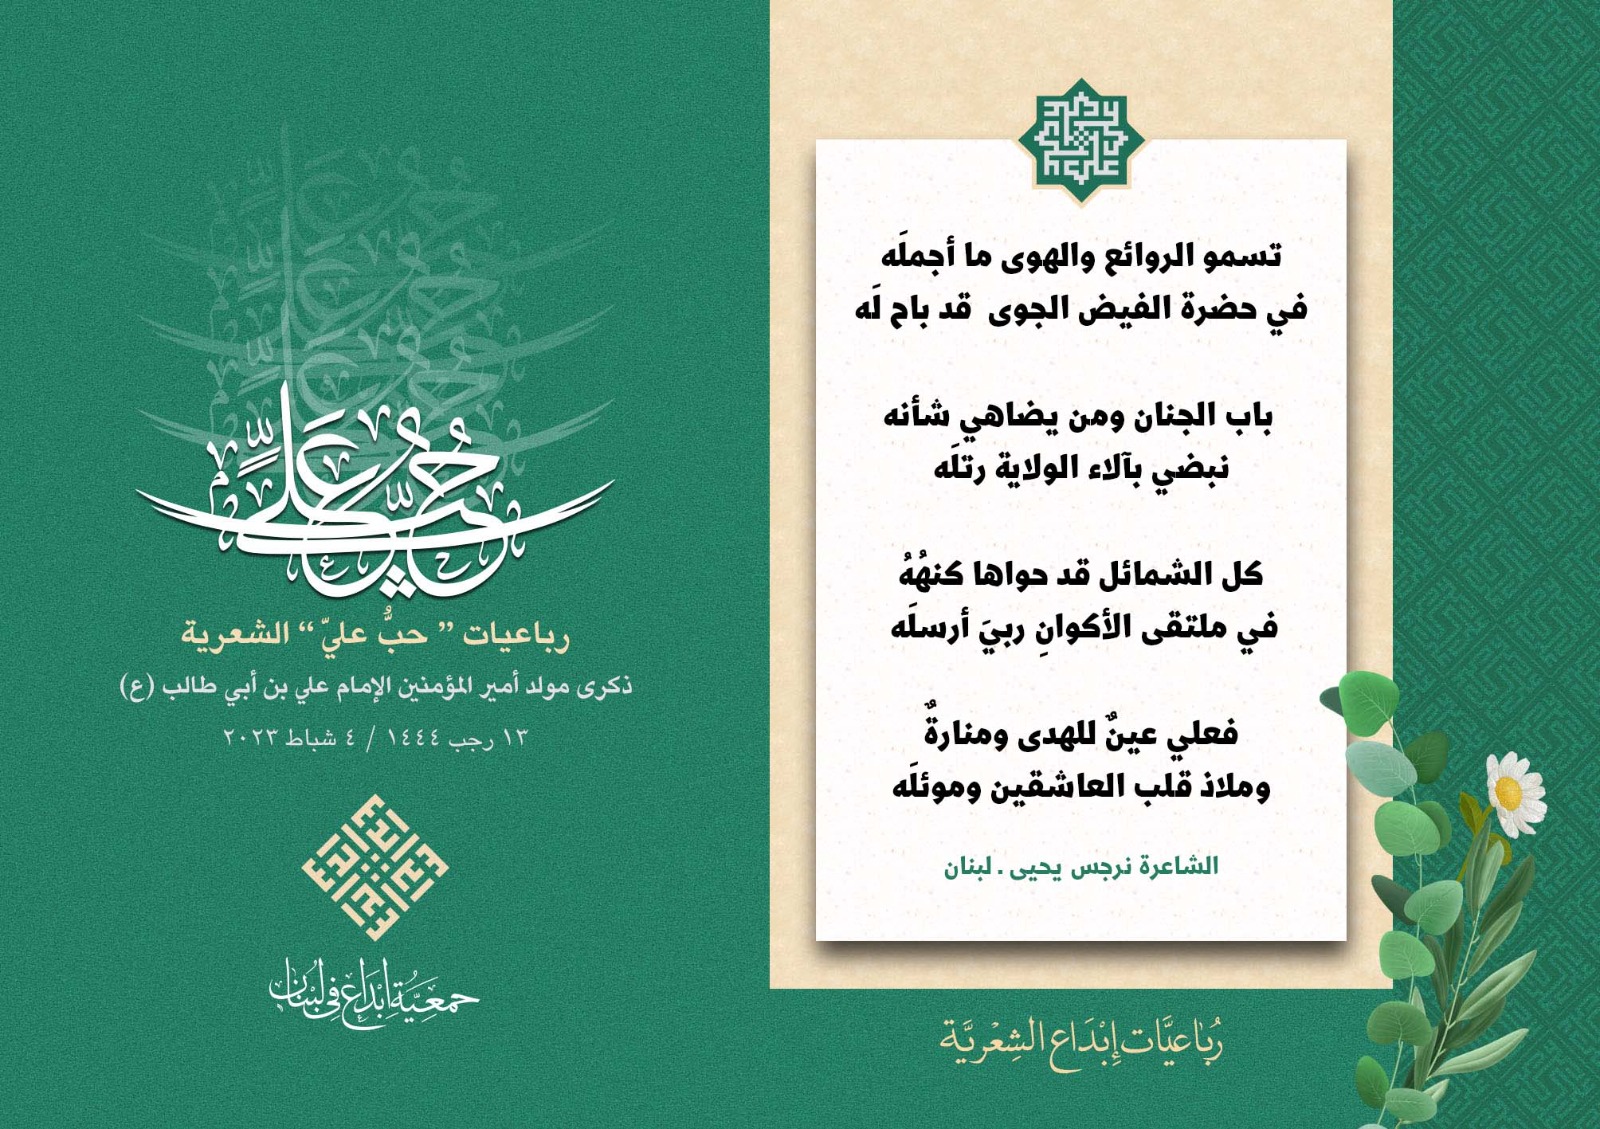 تسمو الروائع والهوى ما أجملَه
في حضرة الفيض الجوى قد باح لَه
باب الجنان ومن يضاهي شأنه
نبضي بآلاء الولاية رتلَه
كل الشمائل قد حواها كنهُهُ
في ملتقى الأكوانِ ربيَ أرسلَه
فعلي عينٌ للهدى ومنارةٌ
وملاذ قلب العاشقين وموئلَه
الشاعرة نرجس يحيى . لبنان
رُبَاعيَّات إِبْدَاع الشِعْريَّة
حُبُّ عَلِيٍّ
رباعيات " حبُّ عليّ " الشعرية
ذكرى مولد أمير المؤمنين الإمام علي بن أبي طالب (ع)
١٣ رجب ١٤٤٤ / ٤ شباط ٢٠٢٣
جمعِيَّة إبْدَاع في لبْنَان